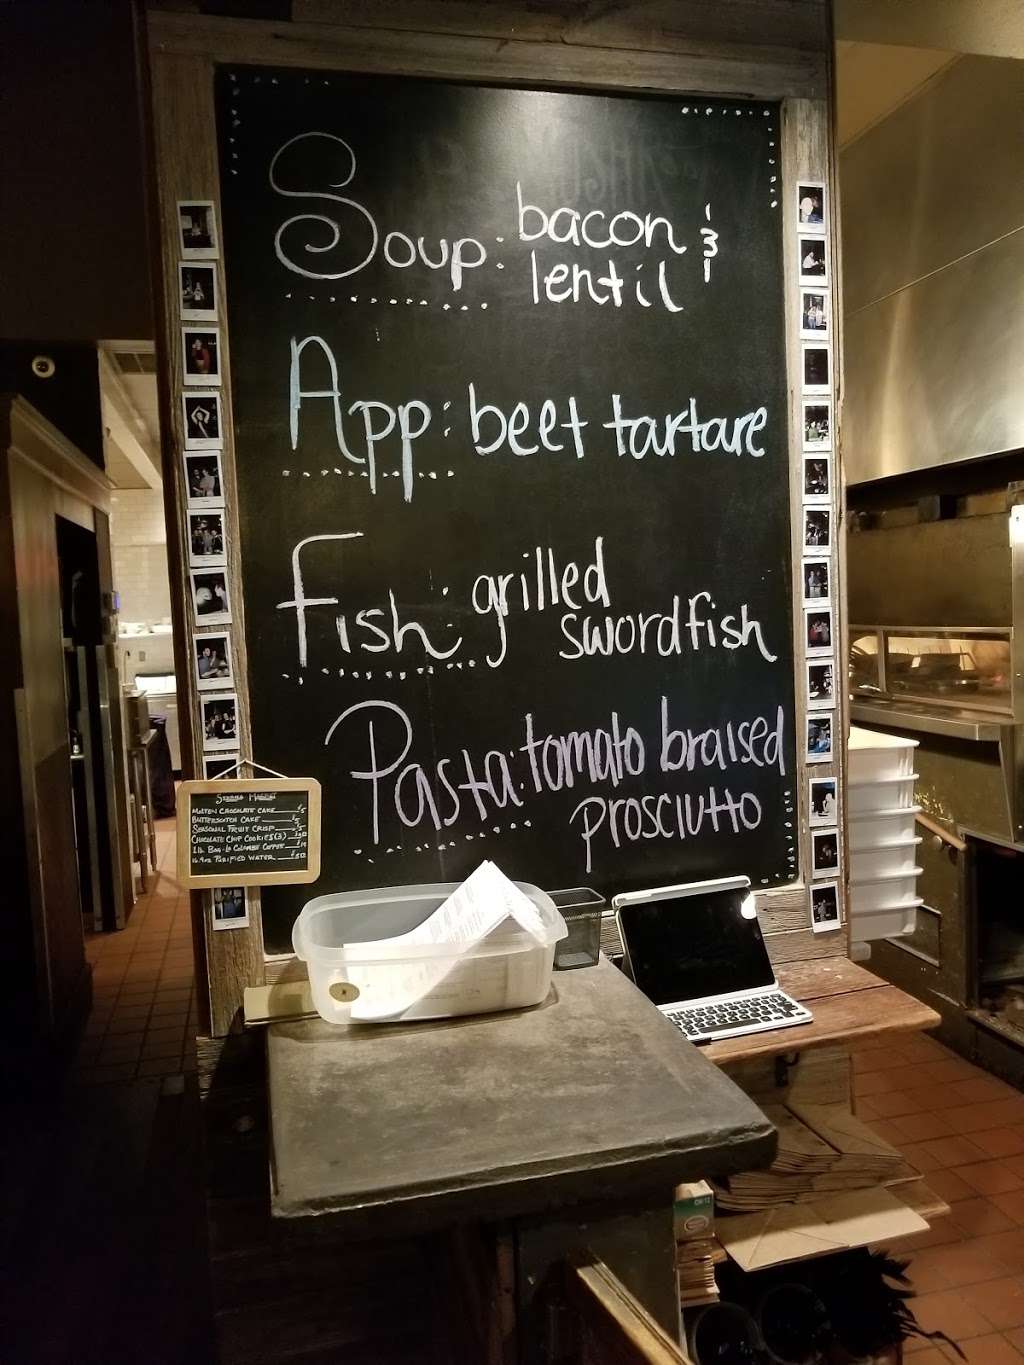 Soup: bacon &
lentil
App: beet tartare
Fish: grilled
swordfish
Pasta: tomato braised
prosciutto
Molten Chocolate Cake $5
Butterscotch Cake $5
Seasonal Fruit Crisp $5
Chocolate Chip Cookies (3)
1 lb. Bag La Colombe Coffee $14
Purified Water